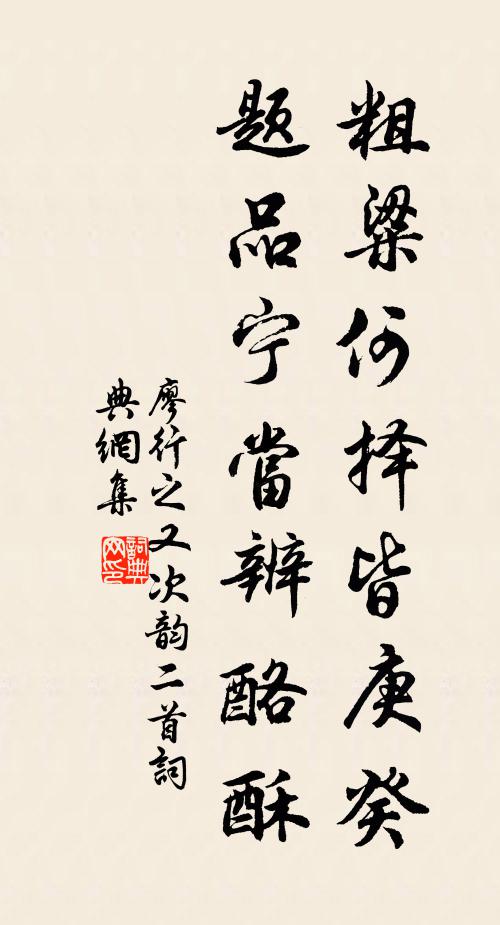 粗梁何择皆庚癸
题品宁當辨酪酥
廖行之又次韵二首詞
典網集
詞典网印